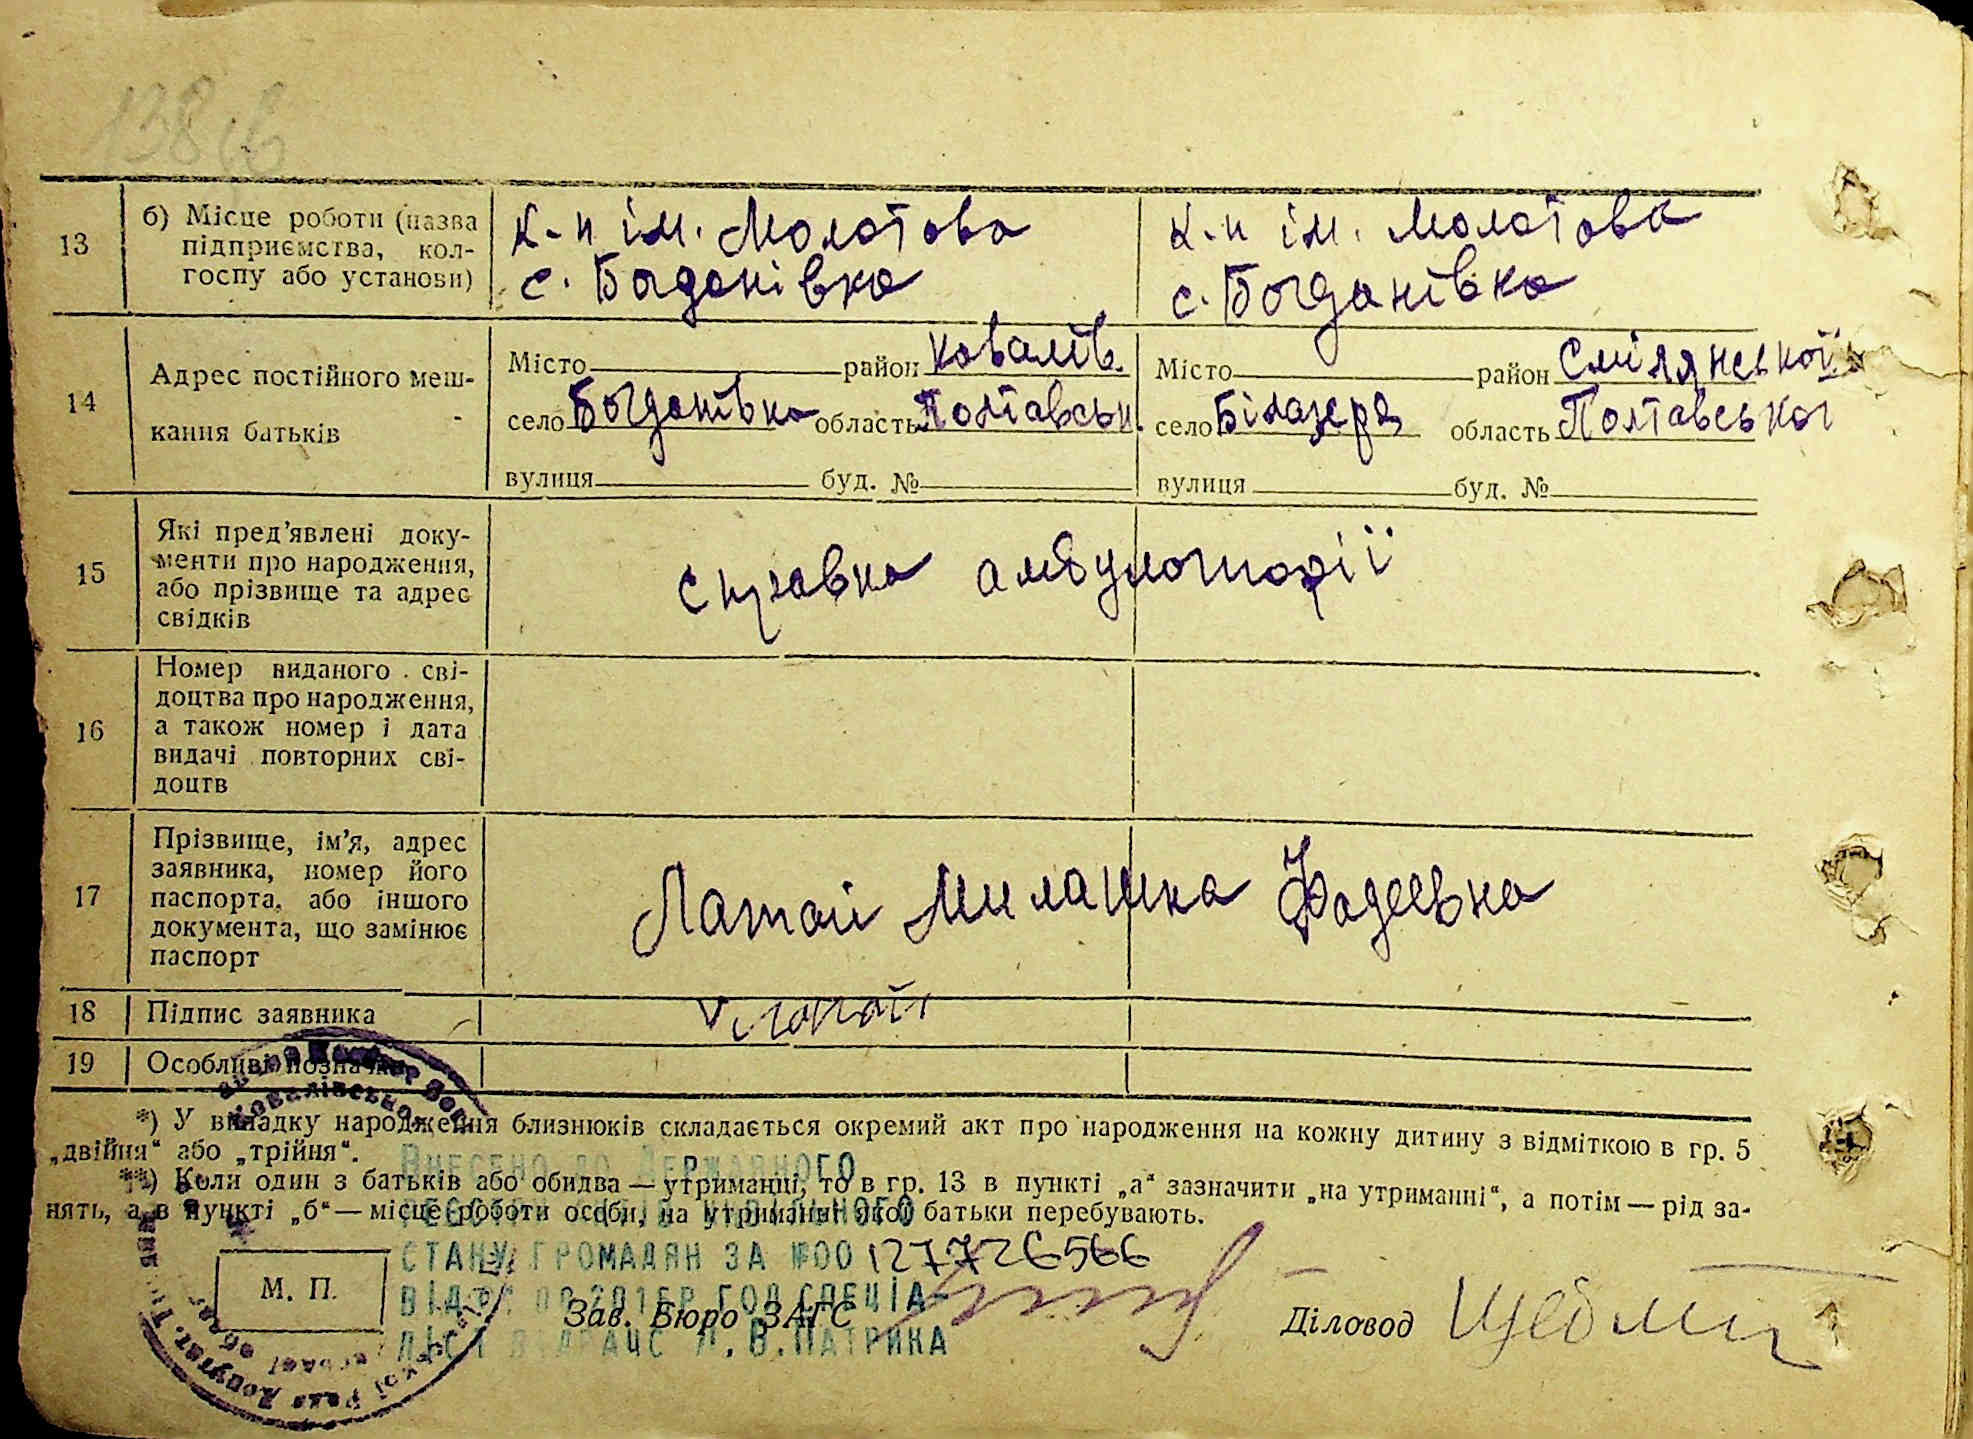 13
б) Місце роботи (назва
підприємства, кол-
госпу або установи)
к-п ім. Молотова
с. Богданівка
к-п ім. Молотова
с. Богданівка
14
Адрес постійного меш-
кання батьків
Місто район Ковалів.
село Богданівка область Полтавськ.
вулиця буд. №
Місто район Смілянської
село Білазера область Полтавської
вулиця буд. №
15
Які пред'явлені доку-
менти про народження,
або прізвище та адрес
свідків
Справка амбулоторії
16
Номер виданого сві-
доцтва про народження,
а також номер і дата
видачі повторних сві-
доцтв
17
Прізвище, ім'я, адрес
заявника, номер його
паспорта, або іншого
документа, що замінює
паспорт
Латай Милашка Фадеевна
18 Підпис заявника
19 Особливі позначки
*) У випадку народження близнюків складається окремий акт про народження на кожну дитину з відміткою в гр. 5
„двійня“ або „трійня“.
**) Коли один з батьків або обидва — утриманці, то в гр. 13 в пункті „а“ зазначити „на утриманні“, а потім — рід за-
нять, а в пункті „б“ — місце роботи особи, на утриманні якої батьки перебувають.
ВНЕСЕНО ДО ДЕРЖАВНОГО
РЕЄСТРУ АКТІВ ЦИВІЛЬНОГО
СТАНУ ГРОМАДЯН ЗА №00127726566
СПЕЦІА-
ЛІСТ В.ПАТРИКА
М. П.
Зав. Бюро ЗАГС
Діловод